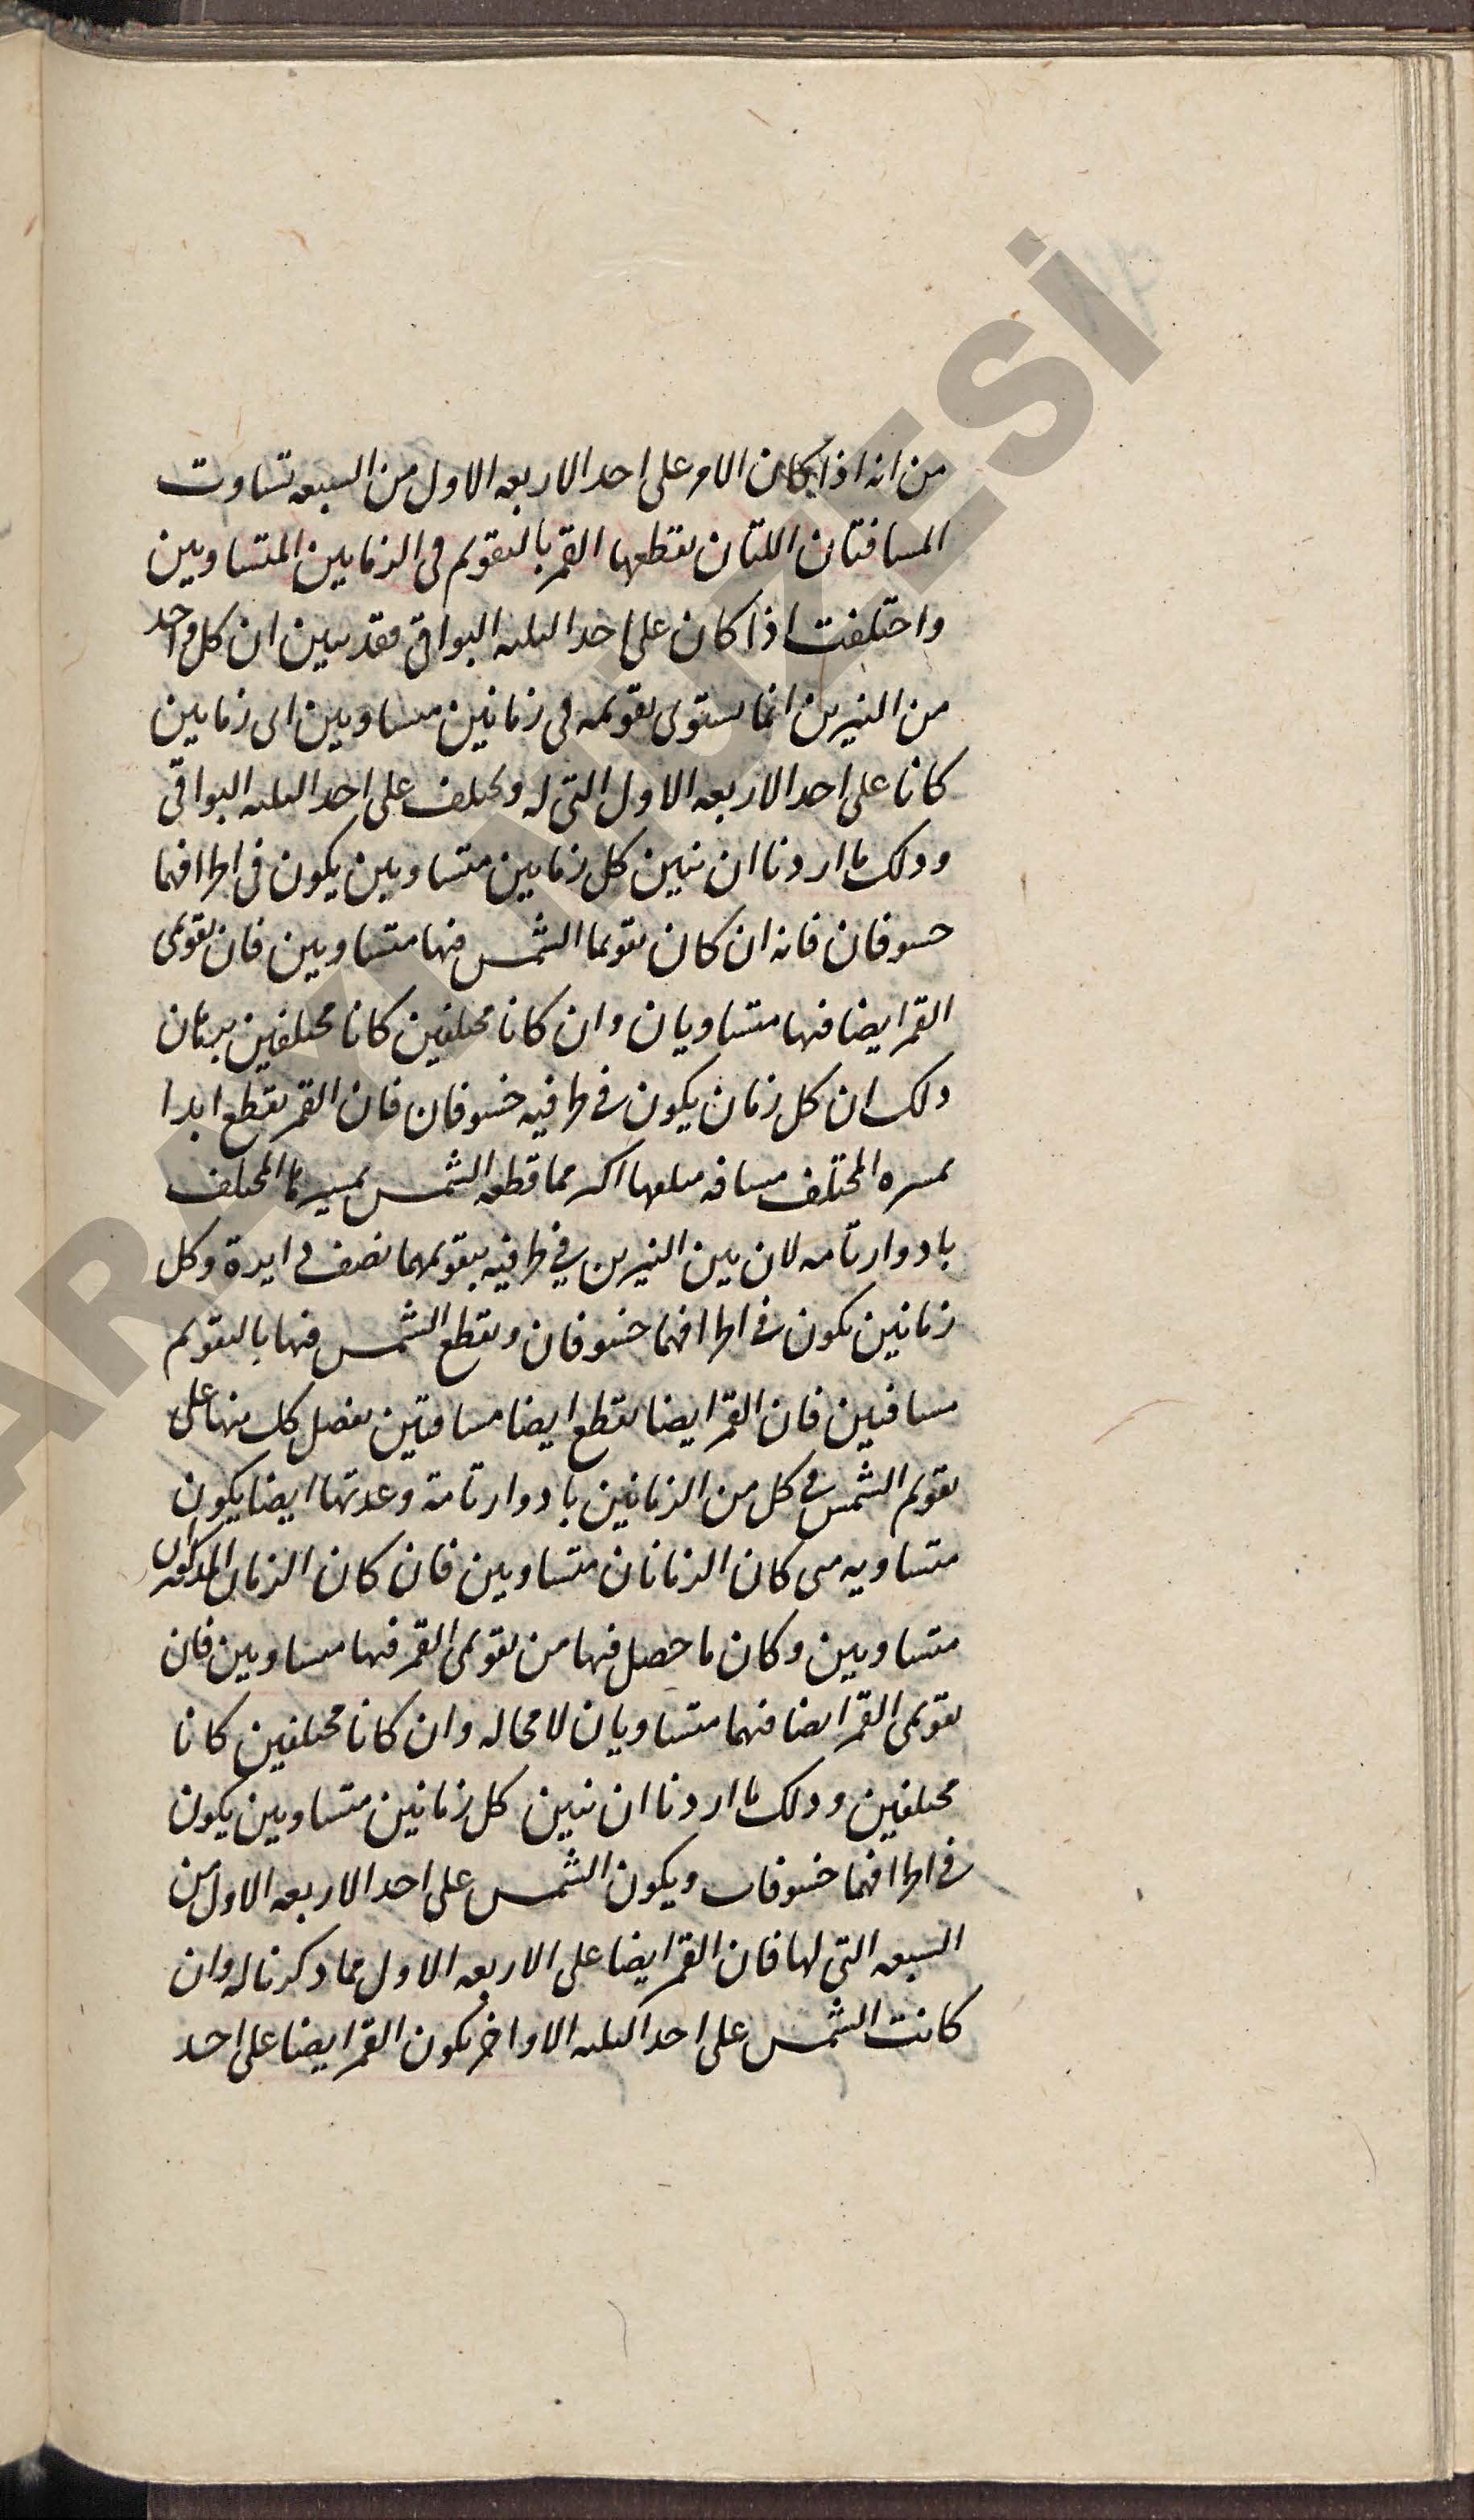 من انه اذا كان الامر على احد الاربعه الاول من السبعه تساوت
المسافتان اللتان يقطعها القمر بالتقويم فى الزمانين المتساويين
واختلفت اذا كان على احد الثلثه البواقى فقد تبين ان كل واحد
من النيرين انما يستوى تقويمه فى زمانين متساويين اى زمانين
كانا على احد الاربعه الاول التى له ويختلف على احد الثلثه البواقى
وذلك ما اردنا ان نبين كل زمانين متساويين يكون فى اطرافهما
خسوفان فانه ان كان تقويما الشمس فيها متساويين فان تقويمى
القمر ايضا فيها متساويان وان كانا مختلفين كانا مختلفين برهان
ذلك ان كل زمان يكون فى طرفيه خسوفان فان القمر يقطع ابدا
بمسيره المختلف مسافه مبلغها اكثر مما قطعه الشمس بمسيرها المختلف
بادوار تامه لان بين النيرين فى طرفيه بتقويمهما نصف دايرة وكل
زمانين يكون فى اطرافهما خسوفان ويقطع الشمس فيها بالتقويم
مسافتين فان القمر ايضا يقطع ايضا مسافتين يفضل كل منها على
تقويم الشمس فى كل من الزمانين بادوار تامة وعدتها ايضا يكون
متساويه متى كان الزمانان متساويين فان كان الزمان المذكوران
متساويين وكان ما حصل فيها من تقويمى القمر فيها متساويين فان
تقويمى القمر ايضا فيهما متساويان لا محاله وان كانا مختلفين كانا
مختلفين وذلك ما اردنا ان نبين كل زمانين متساويين يكون
فى اطرافهما خسوفات ويكون الشمس على احد الاربعه الاول من
السبعه التى لها فان القمر ايضا على الاربعه الاول مما ذكرنا له وان
كانت الشمس على احد الثلثه الاواخر يكون القمر ايضا على احد
ARAYI MÜZESİ